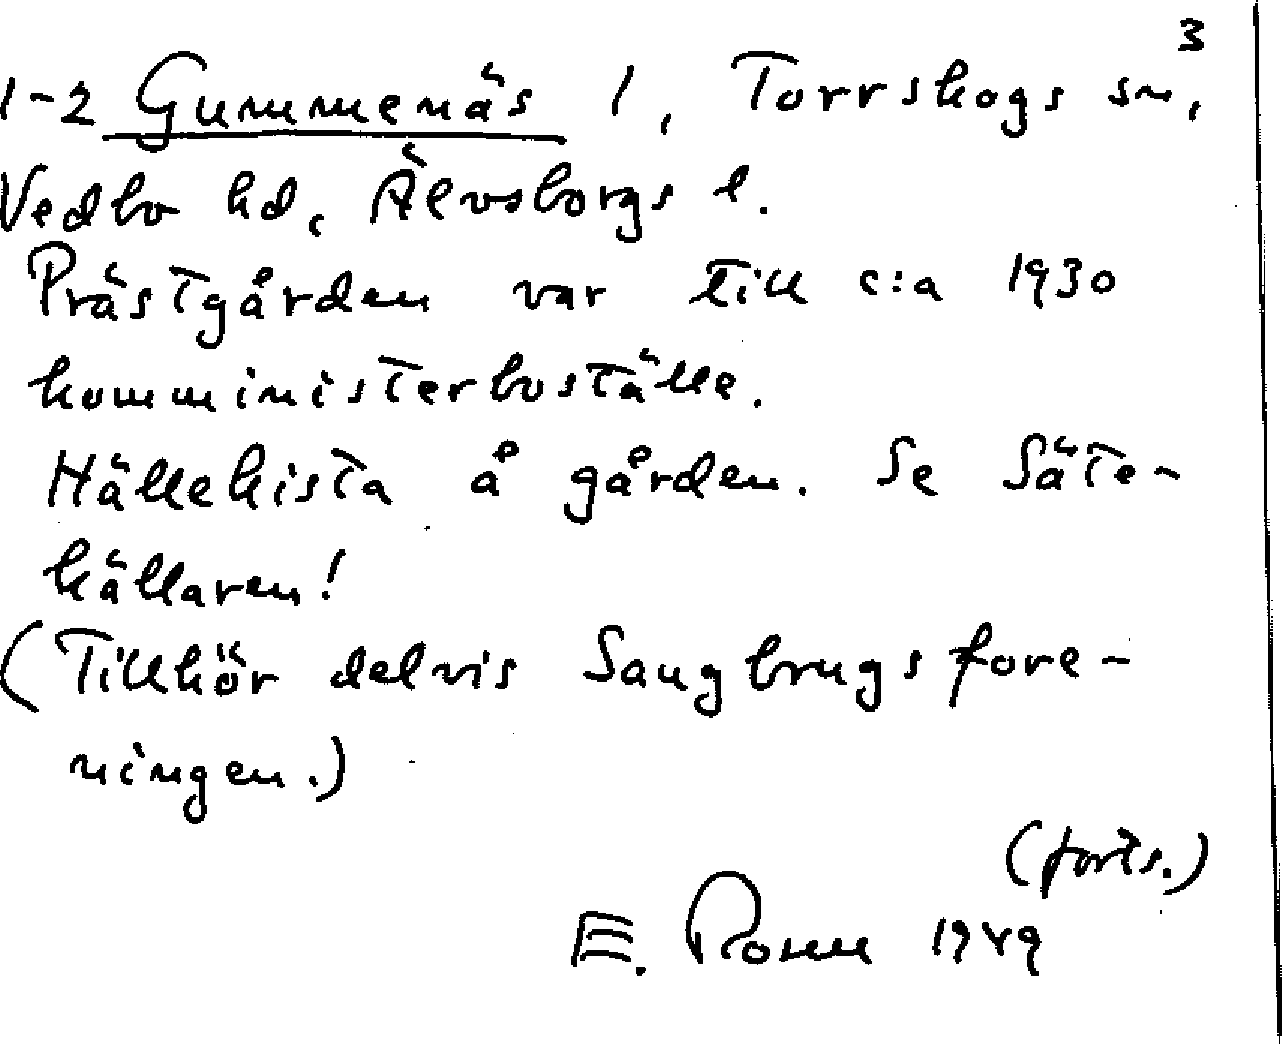 3
1-2 Gummenäs 1, Torrskogs sn,
Vedbo hd, Älvsborgs l.
Prästgården var till c:a 1930
komministerboställe.
Hällekista å gården. Se Säte-
källaren!
(Tillhör delvis Saugbrugsfore-
ningen.)
(forts.)
E. Rosell 1949